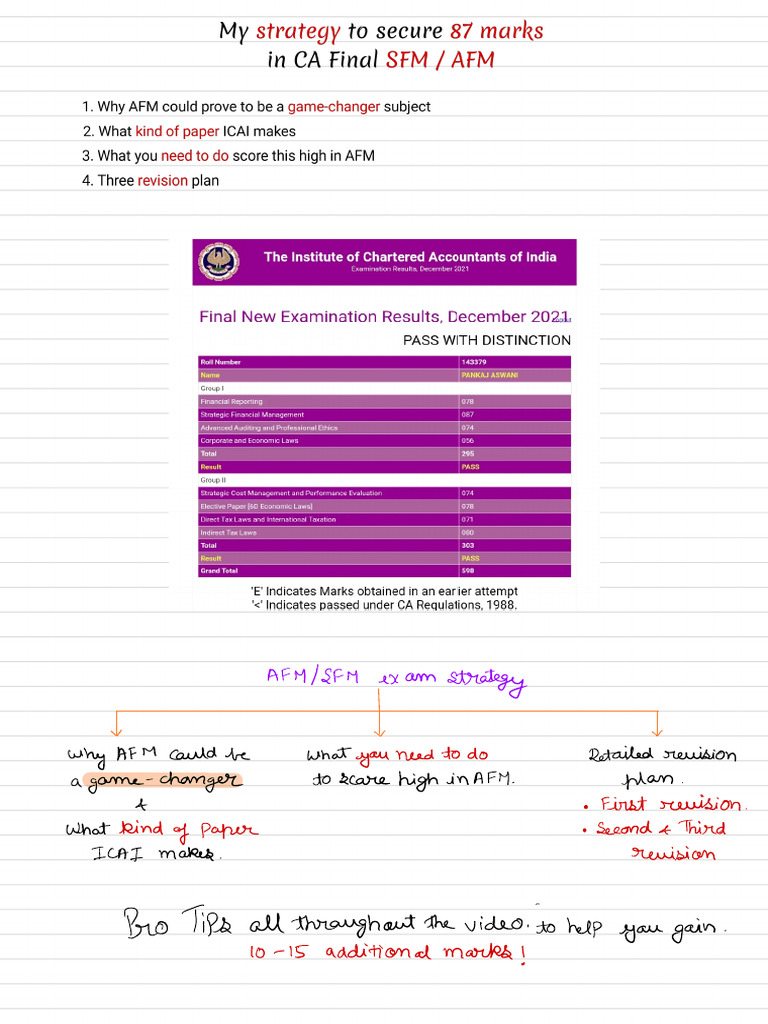 My strategy to secure 87 marks
in CA Final SFM / AFM
1. Why AFM could prove to be a game-changer subject
2. What kind of paper ICAI makes
3. What you need to do score this high in AFM
4. Three revision plan
The Institute of Chartered Accountants of India
Examination Results, December 2021
Final New Examination Results, December 2021
PASS WITH DISTINCTION
Roll Number 143379
Name PANKAJ ASWANI
Group I
Financial Reporting 078
Strategic Financial Management 087
Advanced Auditing and Professional Ethics 074
Corporate and Economic Laws 056
Total 295
Result PASS
Group II
Strategic Cost Management and Performance Evaluation 074
Elective Paper [6D Economic Laws] 078
Direct Tax Laws and International Taxation 071
Indirect Tax Laws 080
Total 303
Result PASS
Grand Total 598
'E' Indicates Marks obtained in an earlier attempt
'<' Indicates passed under CA Regulations, 1988.
AFM/SFM exam strategy
Why AFM could be
a game-changer
&
What kind of Paper
ICAI makes.
What you need to do
to score high in AFM.
Detailed revision
plan.
• First revision.
• Second & Third
revision
Pro Tips all throughout the video. to help you gain.
10-15 additional marks!